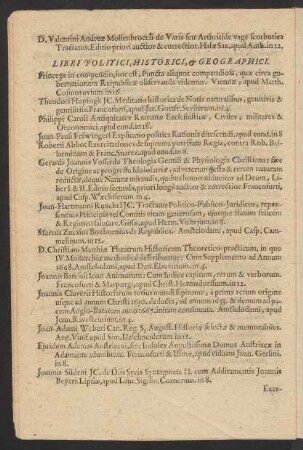 D. Valentini Andreæ Mollenbroccii de Varis seu Arthritide vaga scorbutica
Tractatus. Editio priori auctior & correctior. Halæ Sax. apud Auth. in 12.
LIBRI POLITICI, HISTORICI, & GEOGRAPHICI.
Princeps in compendio, hoc est, Puncta aliquot compendiosa, quæ circa gubernationem
Reipublicæ observanda videntur. Viennæ, apud Matth.
Cosmerovium in 16.
Theodori Höpingk JC. Meditatio historica de Notis naturalibus, genitivis &
gentilitiis. Francofurti, apud
Philippi Caroli Antiquitates Romanæ Ecclesiasticæ, Civiles, militares &
Oeconomicæ, apud eund. in 8.
Joan. Pauli Felwingeri Explicatio politica Rationis dissendi, apud eund. in 8
Roberti Abbot Exercitationes de suprema potestate Regia, contra Rob. Bellarminum
& Franc. Suarez. apud eund. in 8.
Gerardi Joannis Vossii de Theologia Gentili & Physiologia Christiana; sive
de Origine ac progressu Idololatriæ, ad veterum gesta & rerum naturam
reductæ, deque Naturæ mirandis, quibus homo adducitur ad Deum, Liber
I. & II. Editio secunda, priori longè auctior & correctior. Francofurti,
apud Casp. Wächtlerum. in 4.
Joan-Hartmanni JC. Tractatus Politico-Publico-Juridicus, repræsentans
Principis vel Comitis vivam generosam, ejusque statum felicem
& Regimen salutare. Giessæ, apud Herm. Velstenium in 8.
Marcus Zuerius Boxhornius de Republica. Amstelodami, apud Casp. Commelinum.
in 12.
D. Christiani Matthiæ Theatrum Historicum Theoretico-practicum, in quo
IV. Monarchiæ methodicè describuntur. Cum Supplemento ad Annum
1648. Amstelodami, apud Dan. Elzevirium in 4.
Joannis Barclaji Icon Animorum: Cum Indice capitum, rerum & verborum.
Francofurti & Marpurgi, apud Christ. Hermsdorffium in 12.
Joannis Cluverii Historiarum totius mundi Epitome, à prima rerum origine
usque ad annum Christi 1630. deducta, ad annum 1655. & demum ad pacem
Anglo-Batavam anno 1667. initam continuata. Amstelodami, apud
Joan. Ravesteinium. in 4.
Joan-Adami Weberi Can. Reg. S. August. Historiæ selectæ & memorabiles.
Aug. Vind. apud Sim. Utzschneiderum in 12.
Ejusdem Adamas Austriacus, seu Indoles Augustissimæ Domus Austriacæ in
Adamante adumbrata. Francofurti & Ulmæ, apud viduam Joan. Gerlini.
in 8.
Joannis Sildeni JC. de D.is Syris Syntagmata II. cum Additamentis Joannis
Beyeri. Lipsiæ, apud Laur. Sig. Cornerum. in 8.
Exer-